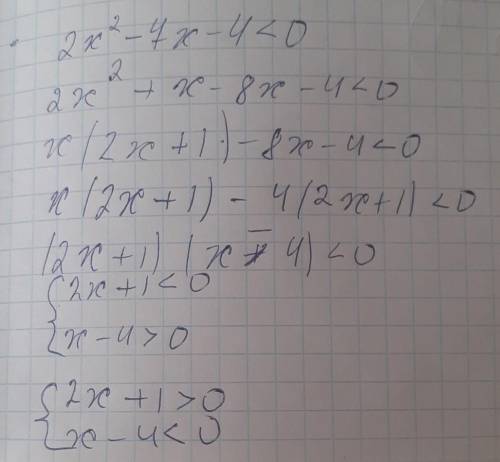 2x² - 7x - 4 < 0
2x² + x - 8x - 4 < 0
x(2x + 1) - 8x - 4 < 0
x(2x + 1) - 4(2x + 1) < 0
(2x + 1) (x - 4) < 0
{ 2x + 1 < 0
{ x - 4 > 0
{ 2x + 1 > 0
{ x - 4 < 0